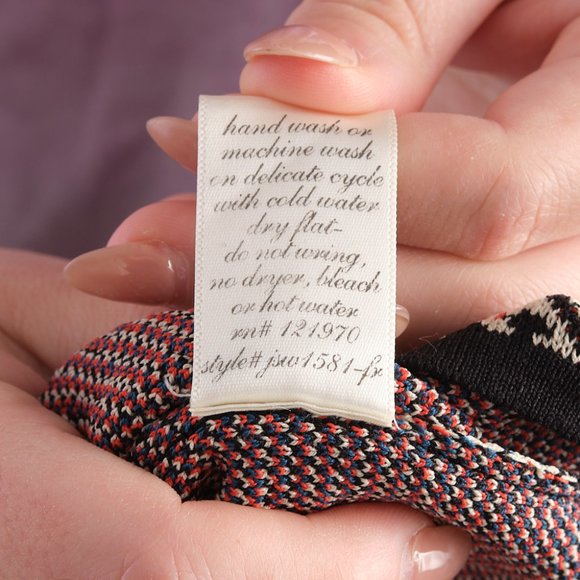 hand wash or
machine wash
on delicate cycle
with cold water
dry flat-
do not wring,
no dryer, bleach
or hot water
rn# 121970
style# jsw1581-fr